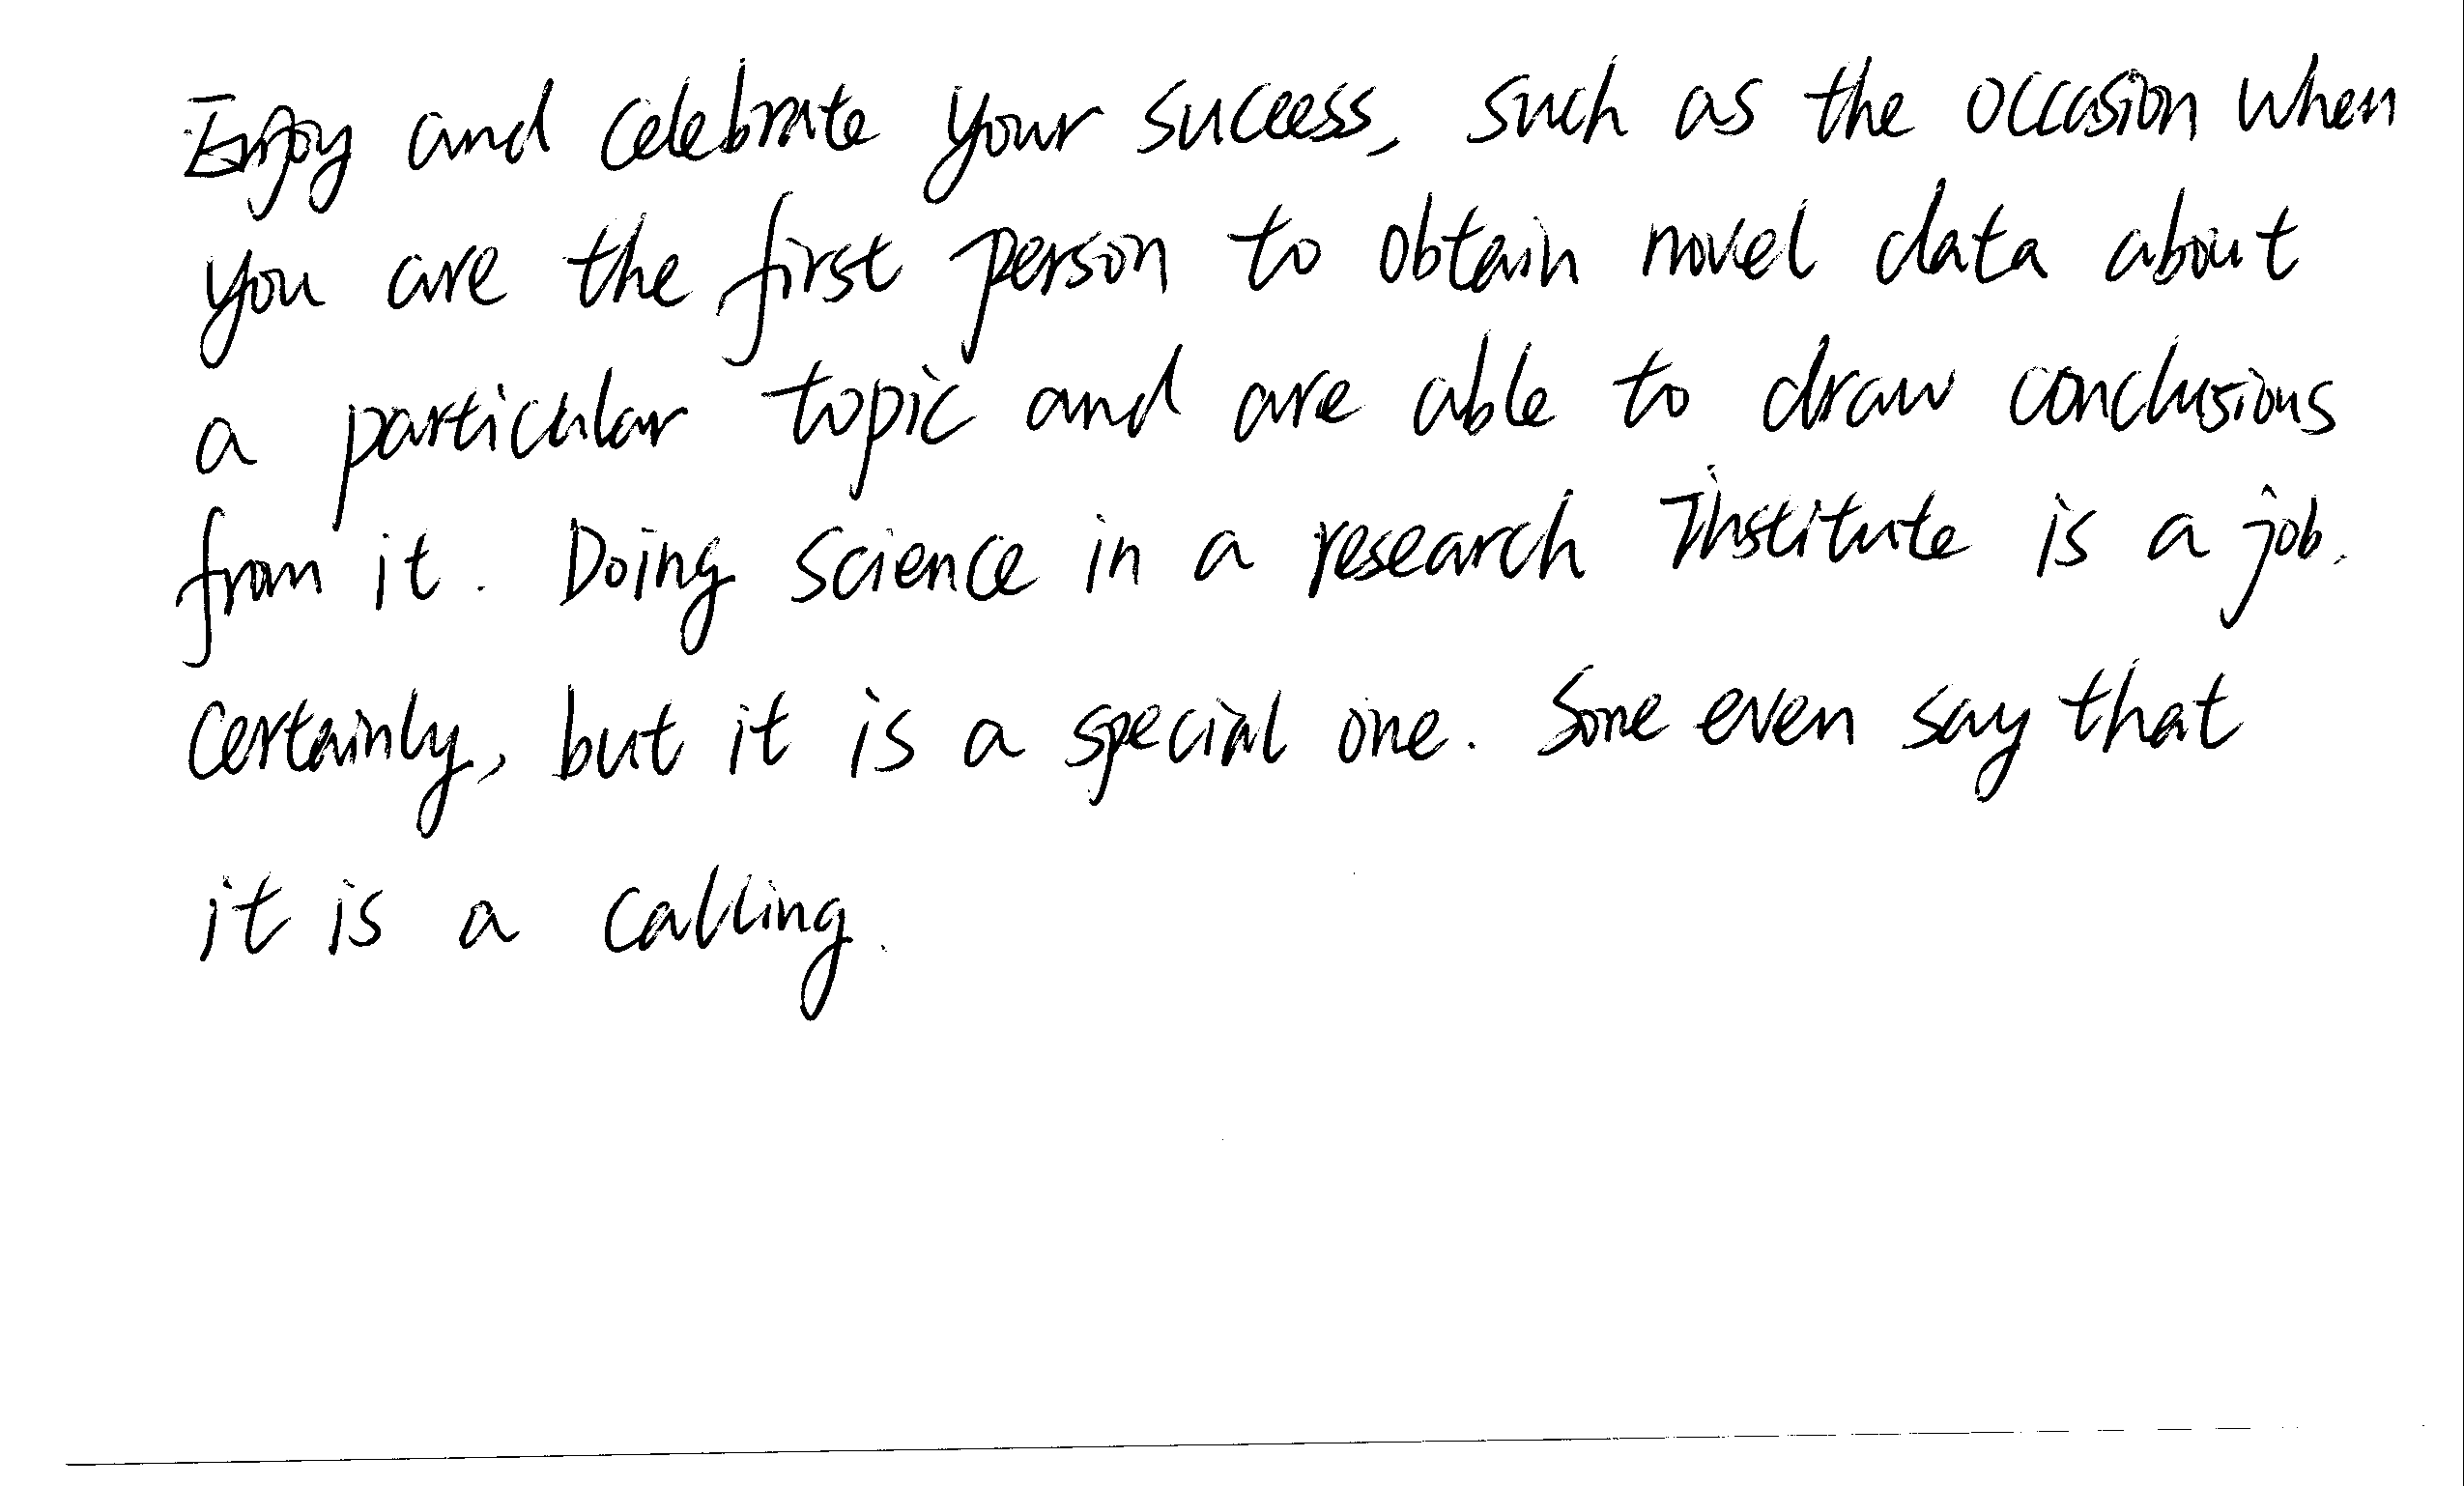 Enjoy and celebrate your success, such as the occasion when
you are the first person to obtain novel data about
a particular topic and are able to draw conclusions
from it. Doing science in a research institute is a job.
Certainly, but it is a special one. Some even say that
it is a calling.